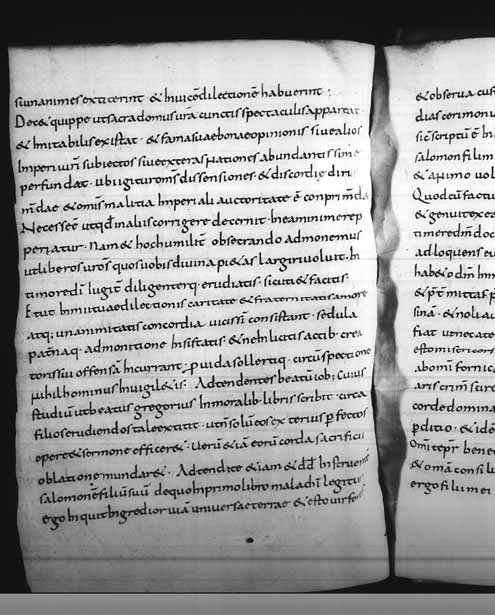 siunanimes extiterint & inuicē dilectionē habuerint :
Doc& quippe ut sacra domus ura cunctis spectaculis appareat
& imitabilis existat · & fama suae bonae opinionis siue alios
imperii uri subiectos siue exteras nationes abundantissime
perfundat · ubi igitur oms dissensiones & discordie diri
mdae & omis malitia imperiali auctoritate ē conprimda
Necesse ē ut qd in aliis corrigere decernit · in ea minime rep
periatur · Nam & hoc humilit obsecrando admonemus
ut liberos uros quos uobis diuina pi&as largiri uoluit · in
timore di iugit diligenterq · erudiatis · sicuti & facitis ·
E t ut in mutuae dilectionis caritate & fraternitatis amore
atq; unanimitatis concordia uicissi consistant · sedula
patnaq · admonitione insistatis & ne in lucitis actib · crea
toris sui offensā incurrant · puida sollertiq · circūspectione
nihilhominus inuigil&is : Adtendentes beatū iob ; Cuius
studiū ut beatus gregorius in moralib · libris scribit · circa
filios erudiendos tale extitit · ut n solū eos exterius pfectos
opere & sermone effice r& · Uerū & iā eorū corda sacrificii
oblatione mundar& · Adtendite & iam & dd instruent
salomonē filiū suū de quo in primo libro malachi legitur
ego hi quit ingredior uiā uniuersae terrae & esto uir for
& obserua cus
dias cerimoniu
sic scriptū ē in
salomon fili m
& animo uol
Quod cū factu
& genuit exez
timere dm doc
ad loquens eu
hab&o dm in m
sina · & noli au
fiat ut necate
abomi fornica
aris crim scire
corde domina
pditio · & ido
Om i tepr bene
& omā consilu
ergo fili mei